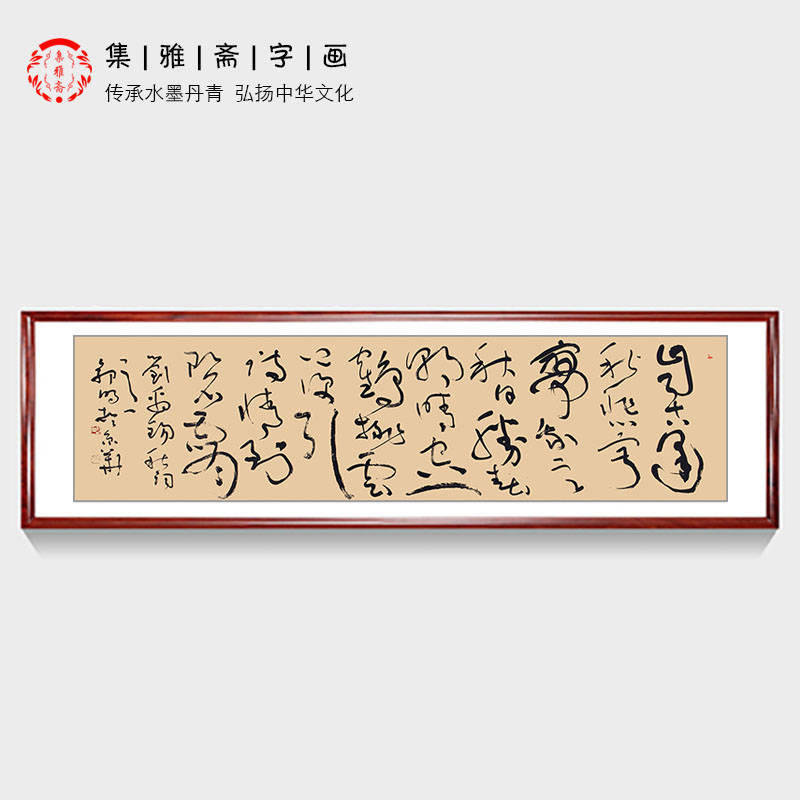 集|雅|斋|字|画
传承水墨丹青 弘扬中华文化
集雅斋
自古逢
秋悲寂
寥我言
秋日勝春
朝晴空一
鶴排雲
上便引
詩情到
碧霄
劉禹錫秋詞